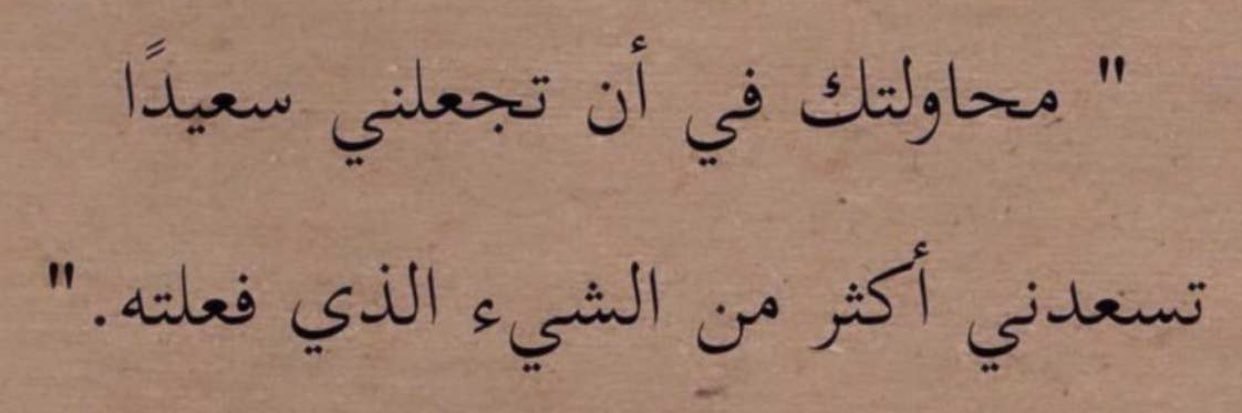 " محاولتك في أن تجعلني سعيدًا
تسعدني أكثر من الشيء الذي فعلته. "